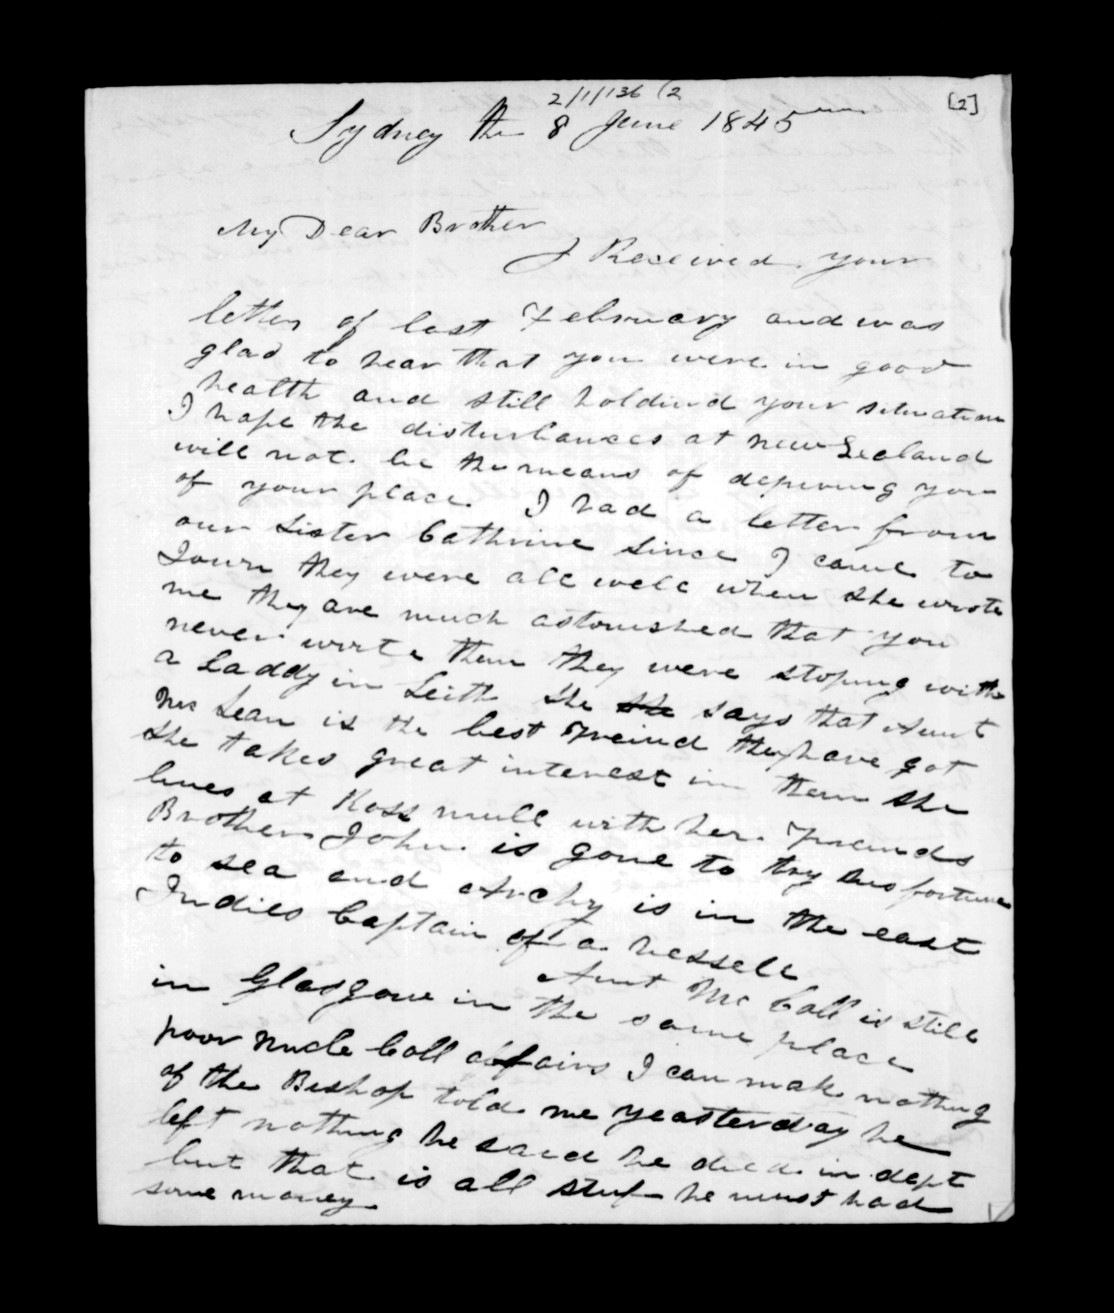 2/1/136 (2
[2]
Sydney the 8 June 1845
My Dear Brother
I Received your
letter of last February and was
glad to hear that you were in good
health and still holdind your situation
I hope the disturbances at new Zealand
will not be the means of depriving you
of your place. I had a letter from
our Sister Cathrine since I came to
Town they were all well when she wrote
me they are much astonished that you
never wrote them they were stoping with
a Laddy in Leith She says that Aunt
Mc Lean is the best Freind they have got
She takes great interest in them She
lives at Ross mull with her Freinds
Brother John is gone to try his fortune
to sea and Archy is in the east
Indies Captain of a vessell
Aunt Mc Coll is still
in Glasgow in the same place
poor Uncle Coll affairs I can make nothing
of the Bishop told me yeasterday he
left nothing he said he died in dept
but that is all stuf he must had
some money